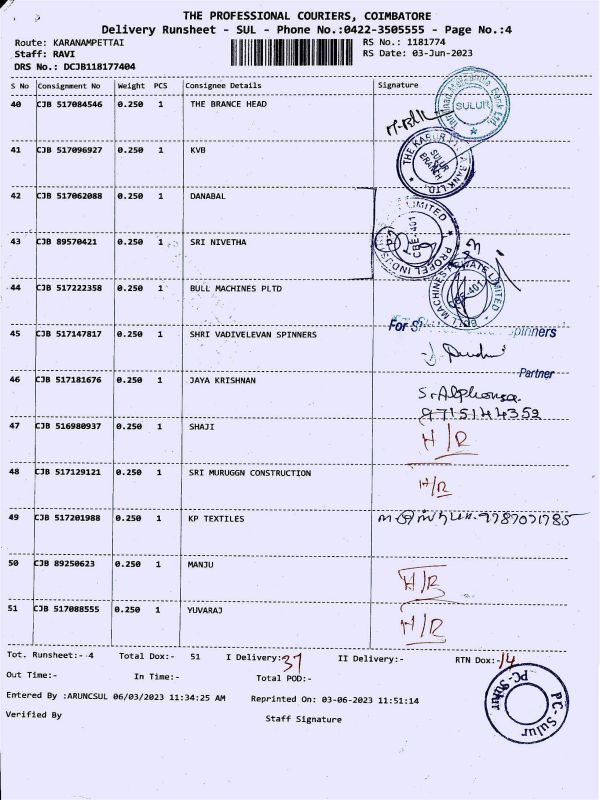 THE PROFESSIONAL COURIERS, COIMBATORE
Delivery Runsheet - SUL - Phone No.:0422-3505555 - Page No.:4
Route: KARANAMPETTAI RS No.: 1181774
Staff: RAVI RS Date: 03-Jun-2023
DRS No.: DCJB118177404
S No Consignment No Weight PCS Consignee Details Signature
40 CJB 517084546 0.250 1 THE BRANCE HEAD
SULUR
41 CJB 517096927 0.250 1 KVB
SULUR BRANCH
42 CJB 517062088 0.250 1 DANABAL
LIMITED
43 CJB 89570421 0.250 1 SRI NIVETHA
CBE-401
44 CJB 517222358 0.250 1 BULL MACHINES PLTD
BULL MACHINES PRIVATE LIMITED
CBE-401
45 CJB 517147817 0.250 1 SHRI VADIVELEVAN SPINNERS
For S spinners
Partner
46 CJB 517181676 0.250 1 JAYA KRISHNAN
Sr Alphonsa
9715144352
47 CJB 516980937 0.250 1 SHAJI H/R
48 CJB 517129121 0.250 1 SRI MURUGGN CONSTRUCTION H/R
49 CJB 517201988 0.250 1 KP TEXTILES 9787071785
50 CJB 89250623 0.250 1 MANJU H/R
51 CJB 517088555 0.250 1 YUVARAJ H/R
Tot. Runsheet:- 4 Total Dox:- 51 I Delivery:- 37 II Delivery:- RTN Dox:- 14
Out Time:- In Time:- Total POD:-
Entered By :ARUNCSUL 06/03/2023 11:34:25 AM Reprinted On: 03-06-2023 11:51:14
Verified By Staff Signature
PC-Sulur PC-Sulur